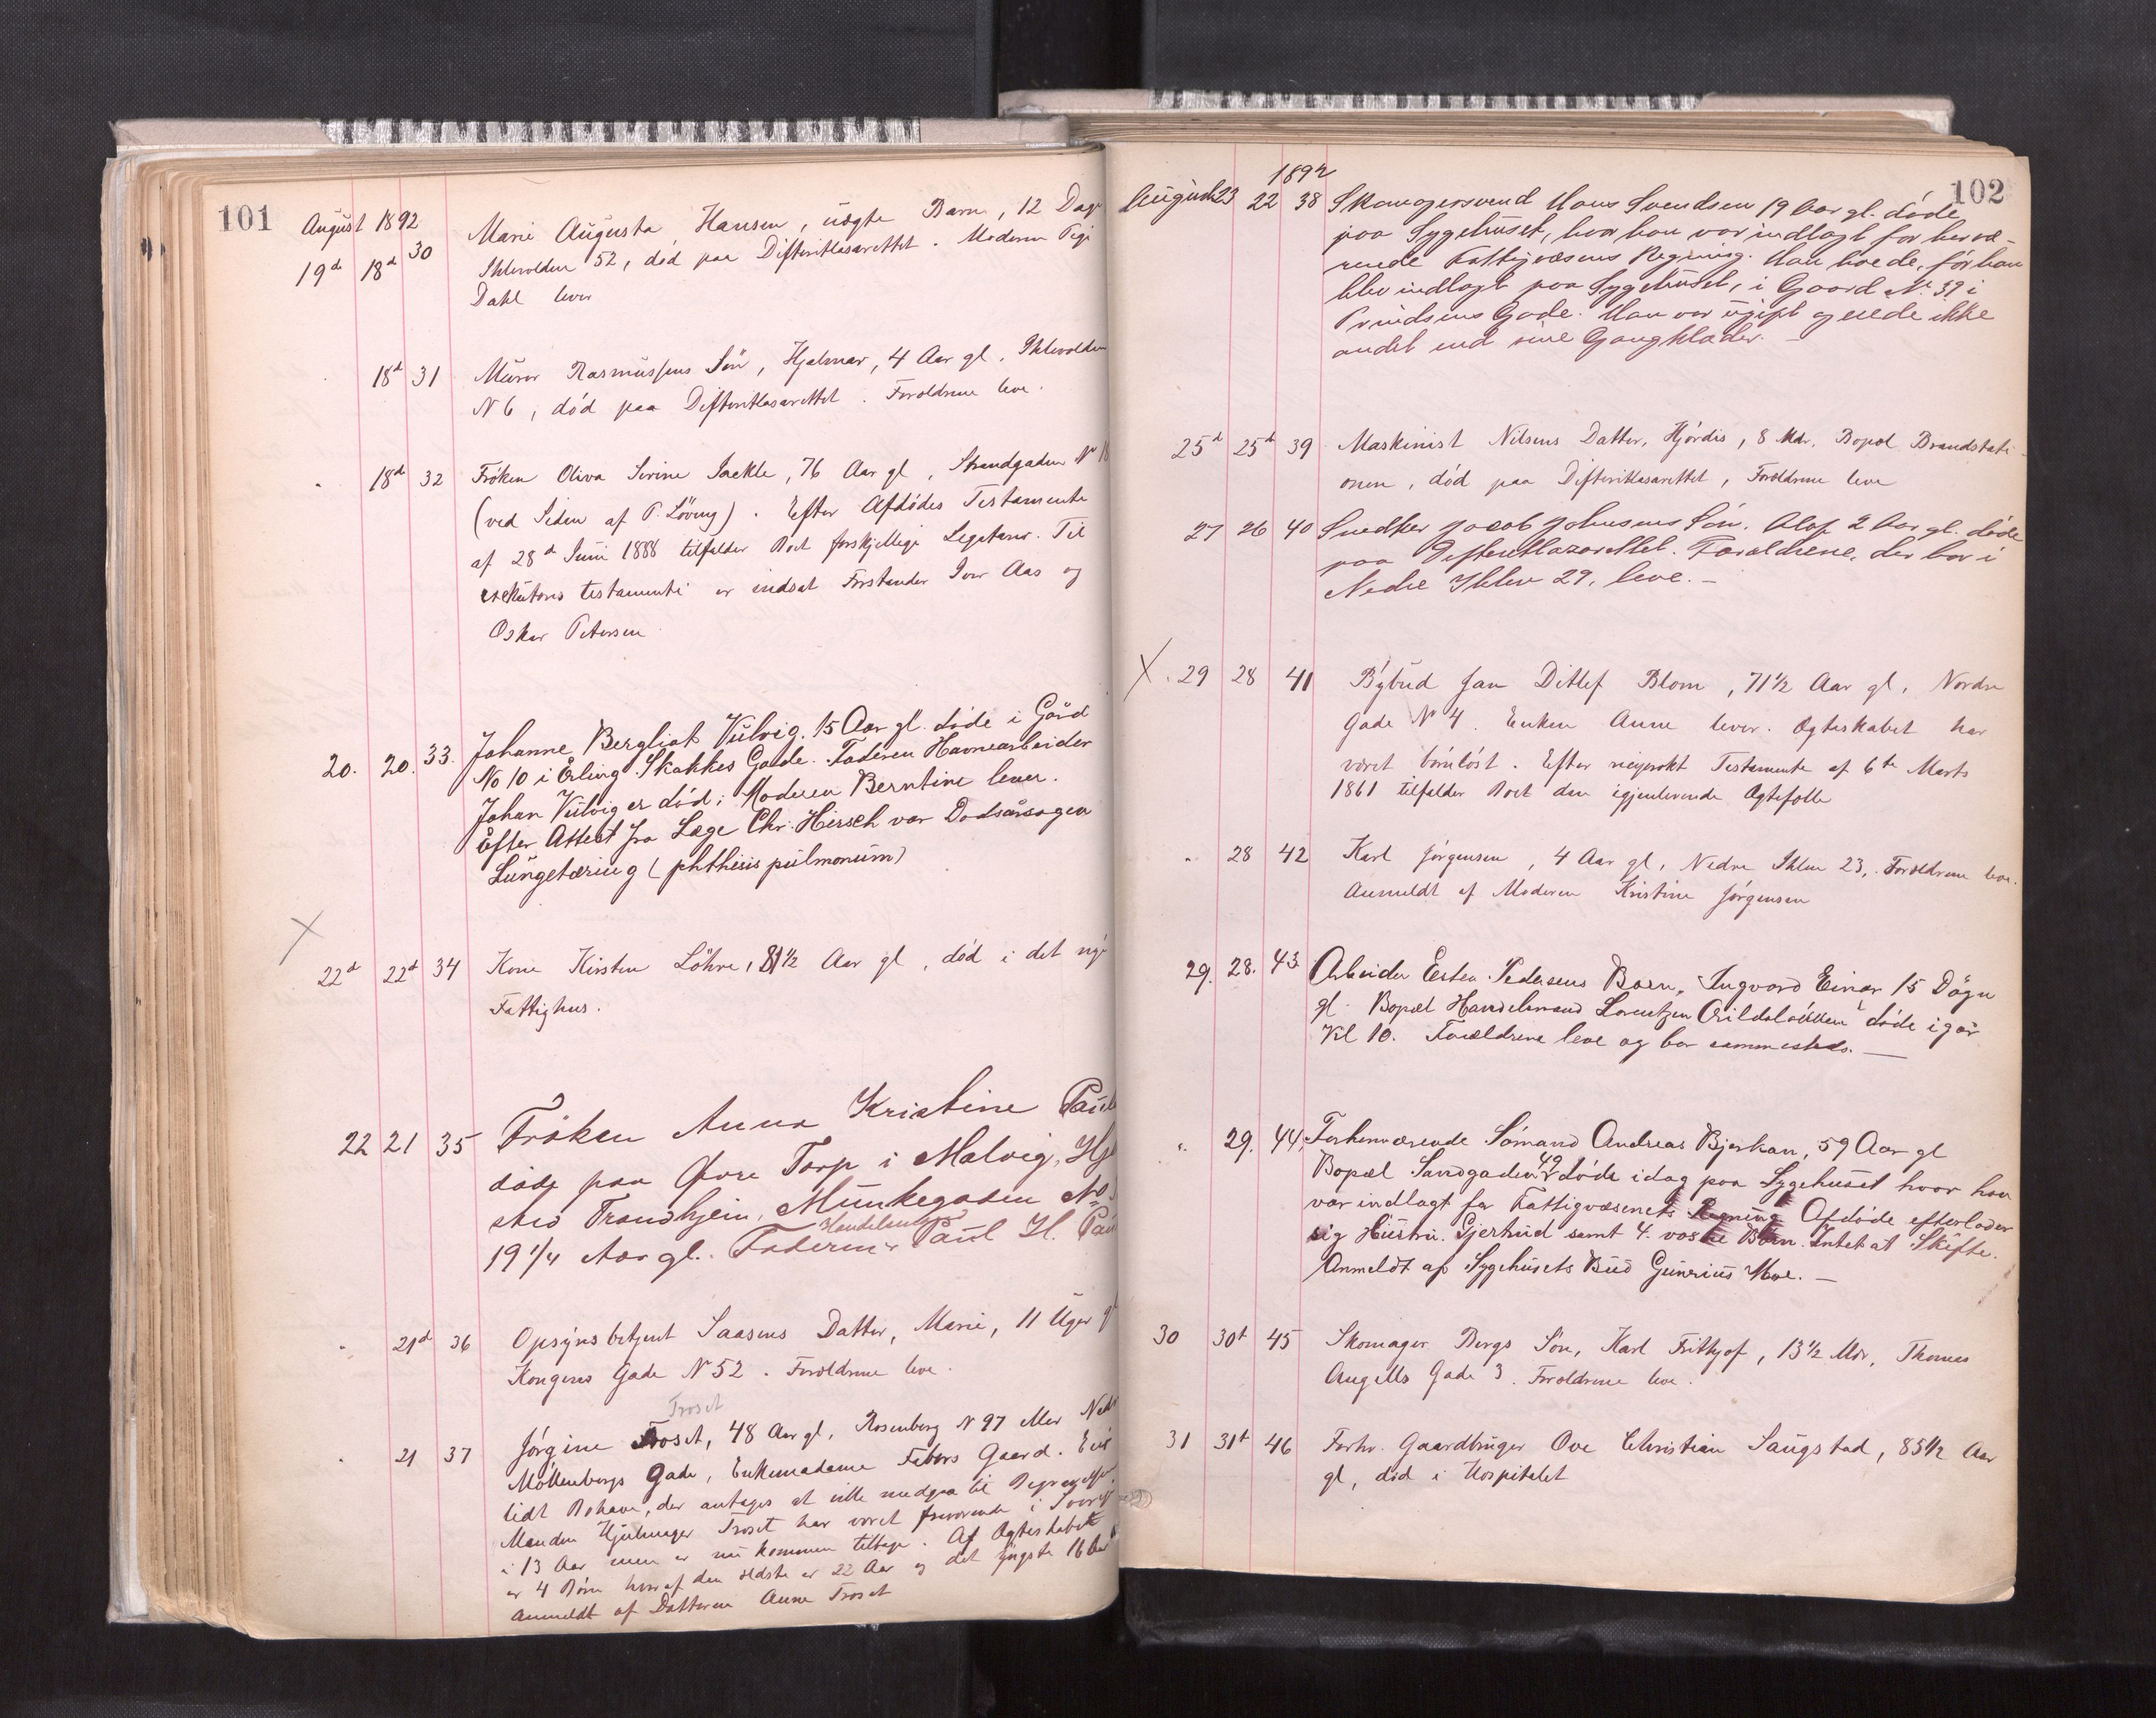 101
August 1892
19de 18d 30 Marie Augusta Hansen, uægte Barn, 12 Dage
Ihlevolden 52, død paa Difteritlasarettet. Moderen Pige
Dahl lever
18d 31 Murer Rasmussens Sön, Hjalmar, 4 Aar gl. Ihlevolden
N 6, död paa Difteritlasarettet. Foræoldrene leve.
" 18d 32 Fröken Oliva Serine Jackle, 76 Aar gl, Strandgaden N 18
(ved Siden af P. Löveng). Efter Afdödes Testamente
af 28d Juni 1888 tilfalder Boet forskjellige Legatarer. Til
exekutores testamenti er indsat Forstander Iver Aas og
Oskar Petersen
20. 20. 33. Johanne Bergliot Vülvig. 15 Aar gl. döde i Gård
No 10 i Erling Skakkes Gade. Faderen Havnearbeider
Johan Vülvig er död; Moderen Berntine lever.
Efter Attest fra Læge Chr. Hirsch var Dødsårsagen
Lungetæring (phthisis pulmonum)
X
22d 22d 34 Kone Kirsten Löhre, 81½ Aar gl, död i det nye
Fattighus.
22 21 35 Fröken Anna Kristine Paul
døde paa Øvre Torp i Malvig, Hj
sted Trondhjem, Munkegaden No
Handelsmand
19 1/4 Aar gl. Faderen Paul H. Pau
" 21d 36 Opsynsbetjent Saasens Datter, Marie, 11 Uger gl
Kongens Gade N 52. Forældrene leve.
Troset
" 21 37 Jörgine Troset, 48 Aar gl, Rosenberg N 97 eller Nedre
Möllenbergs Gade, Enkemadame Febers Gaard. Eier
lidt Bohave, der antages at ville medgaa til Begravelsen
Manden Hjulmager Troset har været fraværende i Sverige
i 13 Aar men er nu kommen tilbage. Af Ægteskabet
er 4 Börn hvoraf den ældste er 22 Aar og det yngste 16 Aar
Anmeldt af Datteren Anne Troset
102
1892
August 23 22 38 Skomagersvend Hans Svendsen 19 Aar gl. döde
paa Sygehuset, hvor han var indlagt for hervæ-
rende Fattigvæsens Regning. Han boede, för han
blev indlagt paa Sygehuset, i Gaard No. 39 i
Prindsens Gade. Han var ugift og eiede ikke
andet end sine Gangklæder.
25d 25d 39 Maskinist Nilsens Datter, Hjördis, 8 Mdr. Bopæl Brandstati-
onen, död paa Difteritlasarettet, Forældrene leve
27 26 40 Snedker Jacob Johnsens Sön. Olaf 2 Aar gl. döde
paa Difteritlazarettet. Forældrene, der bor i
Nedre Ihlen 29, leve.-
X. 29 28 41 Bybud Jan Ditlef Blom, 71½ Aar gl, Nordre
Gade N 4. Enken Anne lever. Ægteskabet har
været börnlöst. Efter Testamente af 6te Marts
1861 tilfalder Boet den igjenlevende Ægtefælle
" 28 42 Karl Jörgensen, 4 Aar gl, Nedre Ihlen 23, Forældrene leve.
Anmeldt af Moderen Kristine Jörgensen
29. 28. 43 Arbeider Esten Pedersens Barn, Ingvard Einar 15 Dögn
gl. Bopæl Handelsmand Lorentzen Arildslökken döde igår
Kl 10. Forældrene leve og bor sammesteds.
" 29. 44, Forhenværende Sömand Andreas Bjerkan, 59 Aar gl
Bopæl Sandgaden 49 döde idag paa Sygehuset hvor han
var indlagt for Fattigvæsenets Regning Afdöde efterlader
sig Hustru. Gjertrud samt 4. voksne Börn. Intet at Skifte.
Anmeldt af Sygehusets Bud Gunerius Moe.-
30 30t 45 Skomager Bergs Sön, Karl Frithjof, 13½ Mdr, Thomas
Angells Gade 3. Forældrene leve.
31 31t 46 Forhv. Gaardbruger Ove Christian Saugstad, 85½ Aar
gl, död i Hospitalet